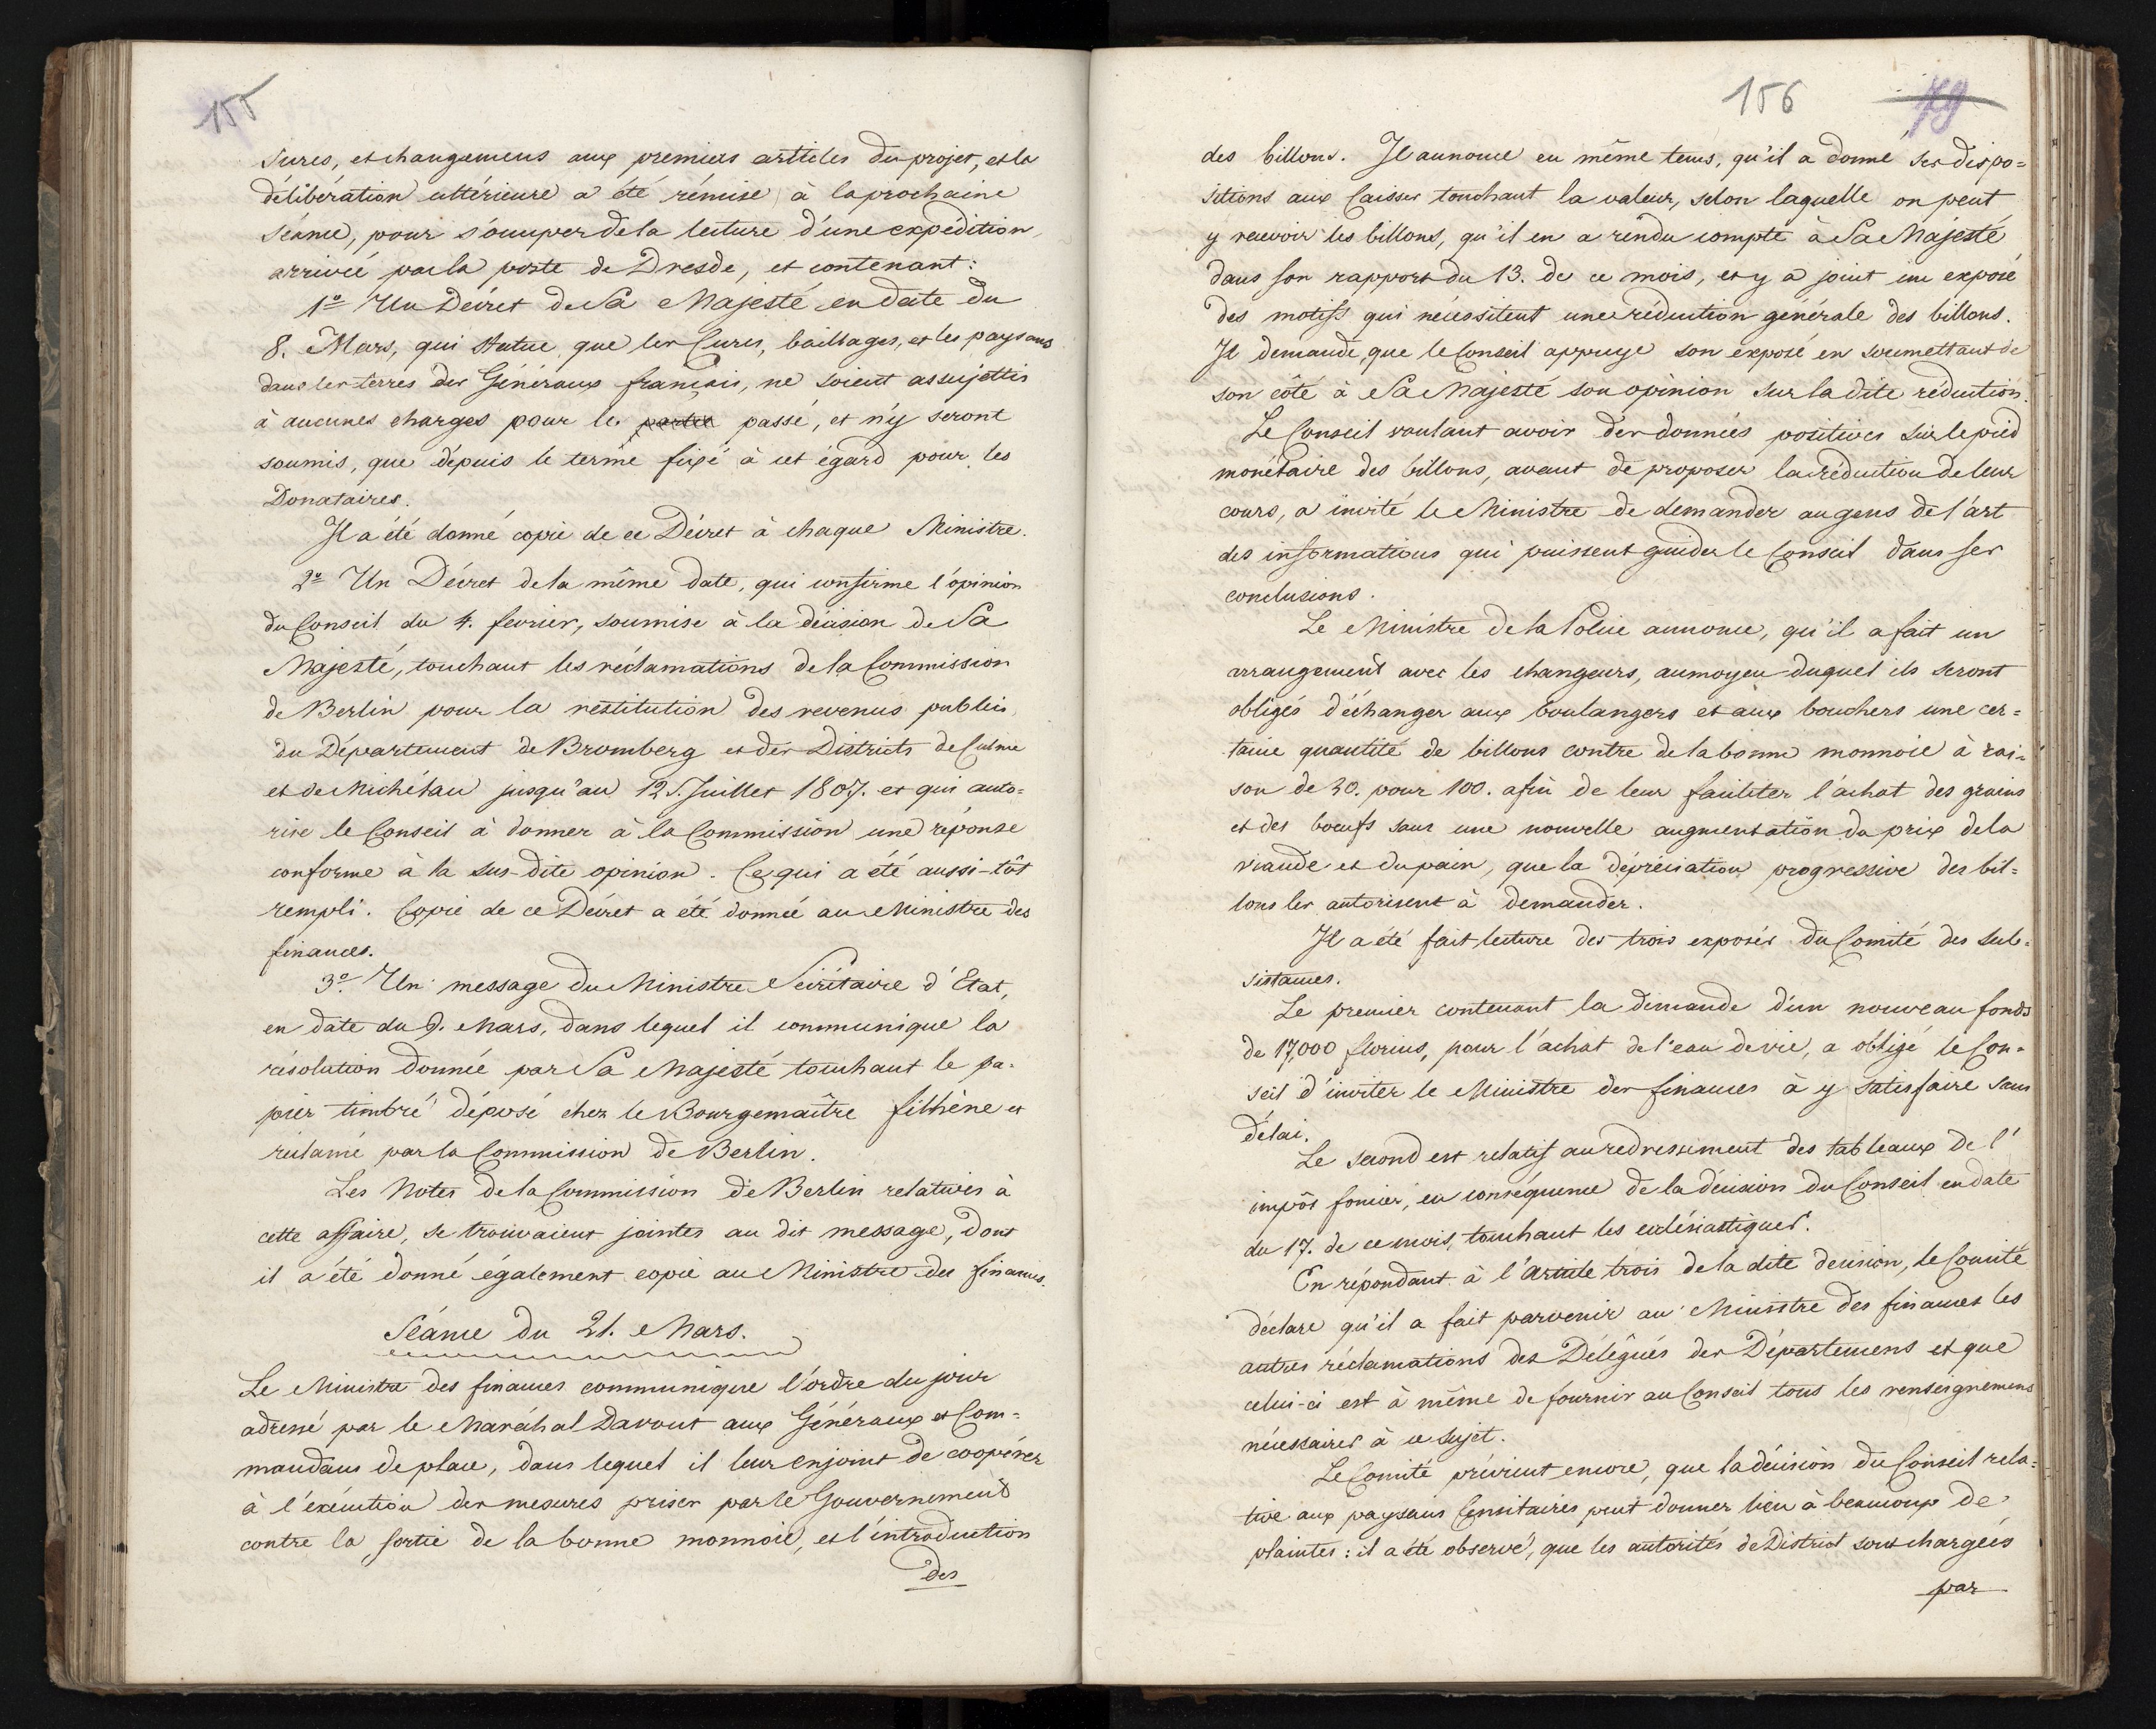 155
sures, et changemens aux premiers articles du projet, et la
délibération ultérieure a été rémise à la prochaine
séance, pour s'occuper de la lecture d'une expédition
arrivée par la poste de Dresde, et contenant:
1º Un Décret de Sa Majesté en date du
8. Mars, qui statue que les Cures, bailliages, et les paysans
dans les terres des Généraux français, ne soient assujettis
à aucunes charges pour le passé, et n'y seront
soumis, que depuis le terme fixé à cet égard pour les
Donataires.
Il a été donné copie de ce Décret à chaque Ministre.
2º Un Décret de la même date, qui confirme l'opinion
du Conseil du 4. fevrier, soumise à la décision de Sa
Majesté, touchant les réclamations de la Commission
de Berlin pour la restitution des revenus publics
du Département de Bromberg et des Districts de Culme
et de Michélau jusqu'au 12. Juillet 1807. et qui auto=
rise le Conseil à donner à la Commission une réponse
conforme à la sus-dite opinion. Ce qui a été aussi-tôt
rempli. Copie de ce Décret a été donnée au Ministre des
finances.
3º. Un message du Ministre Secrétaire d'Etat,
en date du 9. Mars, dans lequel il communique la
résolution donnée par Sa Majesté touchant le pa-
pier timbré déposé chez le Bourgemaître filhène et
réclamé par la Commission de Berlin.
Les Notes de la Commission de Berlin relatives à
cette affaire, se trouvaient jointes au dit message, dont
il a été donné également copie au Ministre des finances.
Séance du 21. Mars.
Le Ministre des finances communique l'ordre du jour
adressé par le Maréchal Davout aux Généraux et Com=
mandans de place, dans lequel il leur enjoint de coopérer
à l'exécution des mesures prises par le Gouvernement
contre la sortie de la bonne monnoie, et l'introduction
des
156 79
des billons. Il annonce en même tems, qu'il a donné ses dispo=
sitions aux Caisses touchant la valeur, selon laquelle on peut
y recevoir les billons, qu'il en a rendu compte à Sa Majesté
dans son rapport du 13. de ce mois, et y a joint un exposé
des motifs qui nécessitent une réduction générale des billons.
Il demande, que le Conseil appuye son exposé en soumettant de
son côté à Sa Majesté son opinion sur la dite réduction.
Le Conseil voulant avoir des données positives sur le pied
monétaire des billons, avant de proposer la réduction de leur
cours, a invité le Ministre de demander au gens de l'art
des informations qui puissent guider le Conseil dans ses
conclusions.
Le Ministre de la Police annonce, qu'il a fait un
arrangement avec les changeurs, au moyen duquel ils seront
obligés d'échanger aux boulangers et aux bouchers une cer=
taine quantité de billons contre de la bonne monnoie à rai=
son de 30. pour 100. afin de leur faciliter l'achat des grains
et des boeufs sans une nouvelle augmentation du prix de la
viande et du pain, que la dépréciation progressive des bil=
lons les autorisent à demander.
Il a été fait lecture des trois exposés du Comité des sub=
sistances.
Le premier contenant la demande d'un nouveau fonds
de 17,000 florins, pour l'achat de l'eau de vie, a obligé le Con=
seil d'inviter le Ministre des finances à y satisfaire sans
délai.
Le second est relatif au redressement des tableaux de l'
impôt foncier, en conséquence de la décision du Conseil en date
du 17. de ce mois, touchant les ecclésiastiques.
En répondant à l'Article trois de la dite decision, le Comité
déclare qu'il a fait parvenir au Ministre des finances les
autres réclamations des Délégués des Départemens et que
celui-ci est à même de fournir au Conseil tous les renseignemens
nécessaires à ce sujet.
Le Comité prévient encore, que la décision du Conseil rela=
tive aux paysans Censitaires peut donner lieu à beaucoup de
plaintes: il a été observé, que les autorités de District sont chargées
par